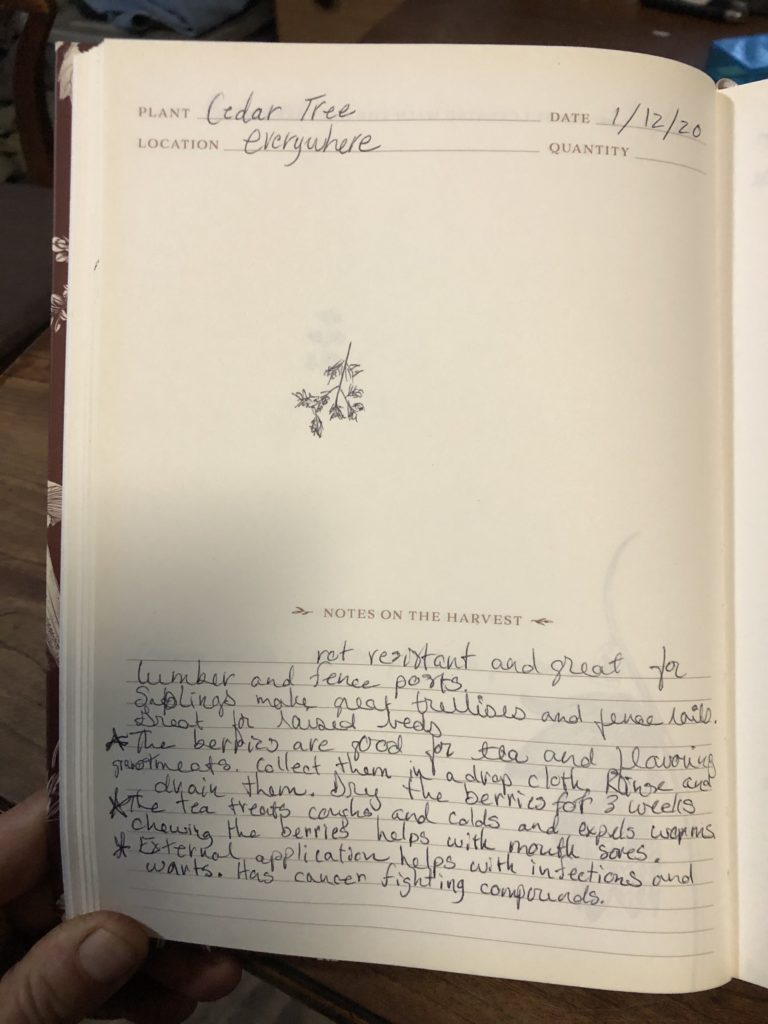 PLANT Cedar Tree DATE 1/12/20
LOCATION everywhere QUANTITY
NOTES ON THE HARVEST
rot resistant and great for
lumber and fence posts.
Saplings make great trellises and fence rails.
Great for raised beds
★ The berries are good for tea and flavoring
meats. Collect them in a drop cloth. Rinse and
drain them. Dry the berries for 3 weeks
★ The tea treats coughs and colds and expels worms
chewing the berries helps with mouth sores.
★ External application helps with infections and
warts. Has cancer fighting compounds.